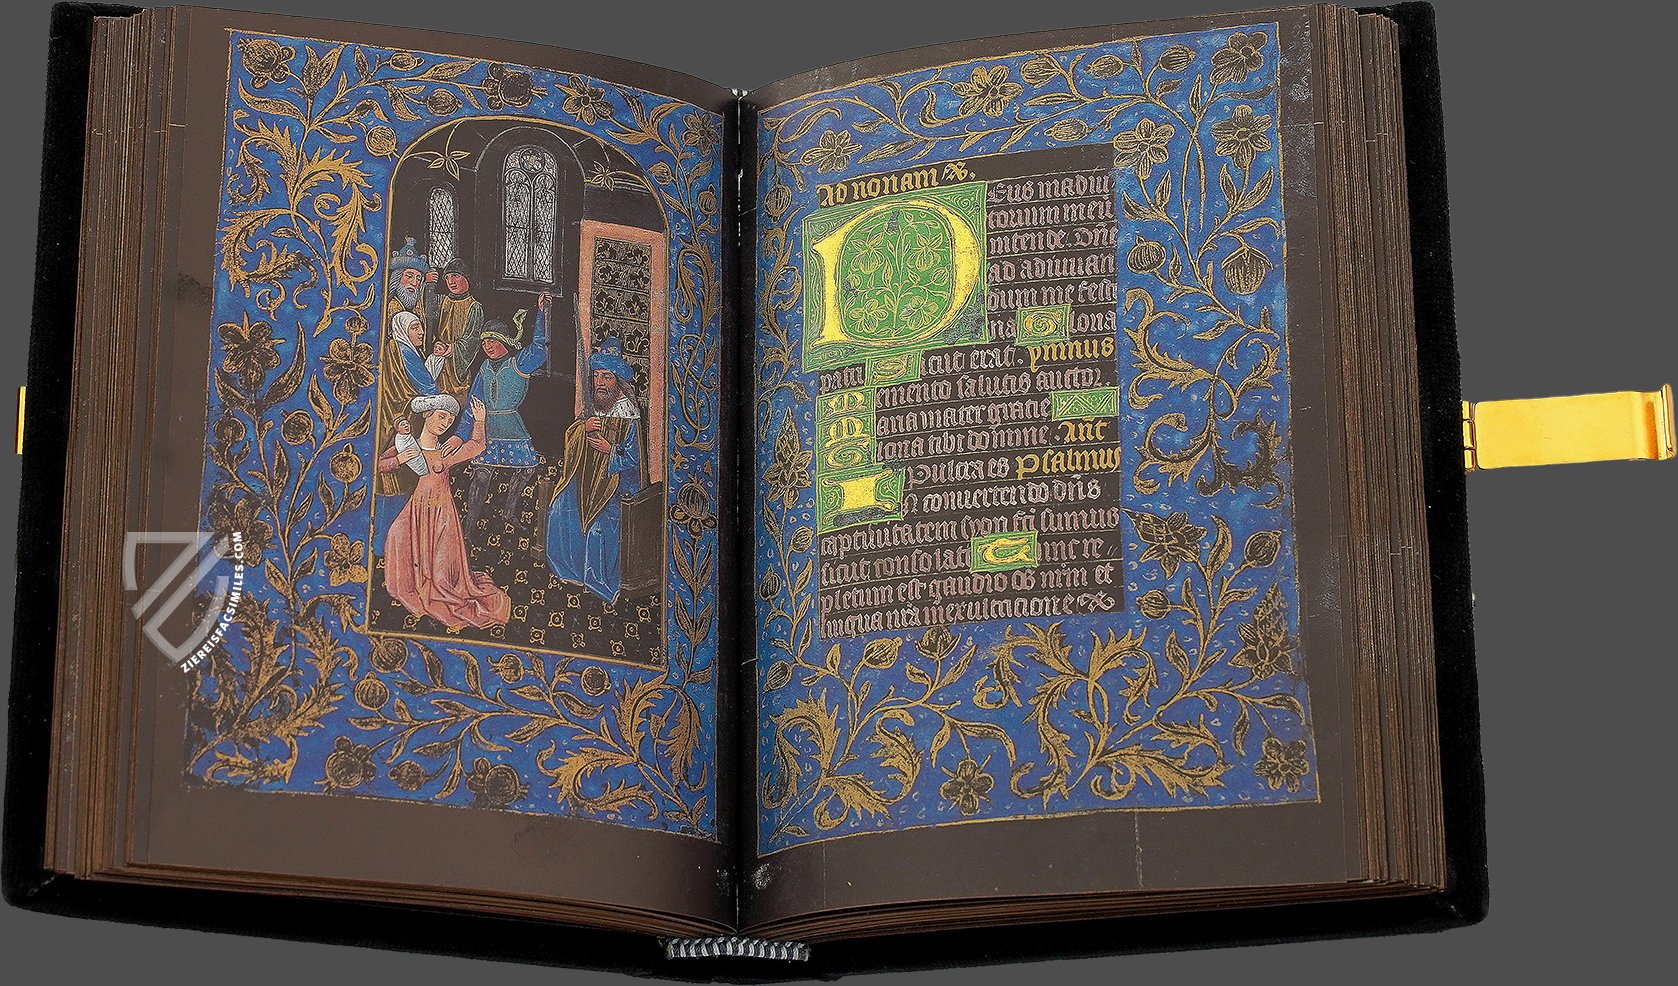 ZIEREISFACSIMILES.COM
Ad nonam
Deus in adiu
torium meu
intende. Dne
ad adiuuan
dum me festi
na Gloria
patri Sicut erat. ymnus
Memento salutis auctor.
Maria mater gratie
Gloria tibi domine. Ant
Pulcra es Psalmus
In conuertendo dns
captiuitatem syon fci sumus
sicut consolati Tunc re
pletum est gaudio os nrm et
lingua nra in exultatione